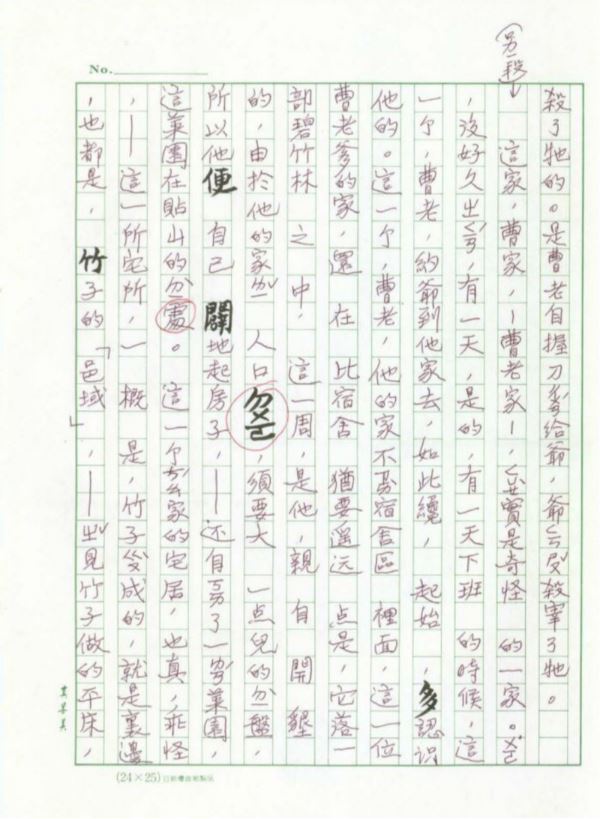 No.
(另一段)
殺了牠的。是曹老自握刀ㄉㄠ給爺,爺ㄙ叉殺宰了牠。
這家,曹家,-曹老家-,ㄑ其實是奇怪 的一家。
,沒好久 有一天,是的,有一天下班 的時候,這
一个,曹老,約爺到他家去,如此纔, 起始,多認识
他的。這一个,曹老,他的家不 宿舍區 裡面,這一位
曹老爹的家,還 在 比宿舍 猶要遥远 点是,它落一
部碧竹林 之 中, 這一周,是他,親 自 開 墾
的,由於他的家 人口 ,須要大 一点兒的 盤,
所以他便 自己 闢地起房子,——还自 了一 菜園,
這菜園在貼山的 處。 這一个 家的宅居,也真,乖怪
,——這一所宅所,一 概 是,竹子 成的,就是裏邊
,也都是, 竹子的「邑域」,—— 見竹子做的平床,
(24×25)